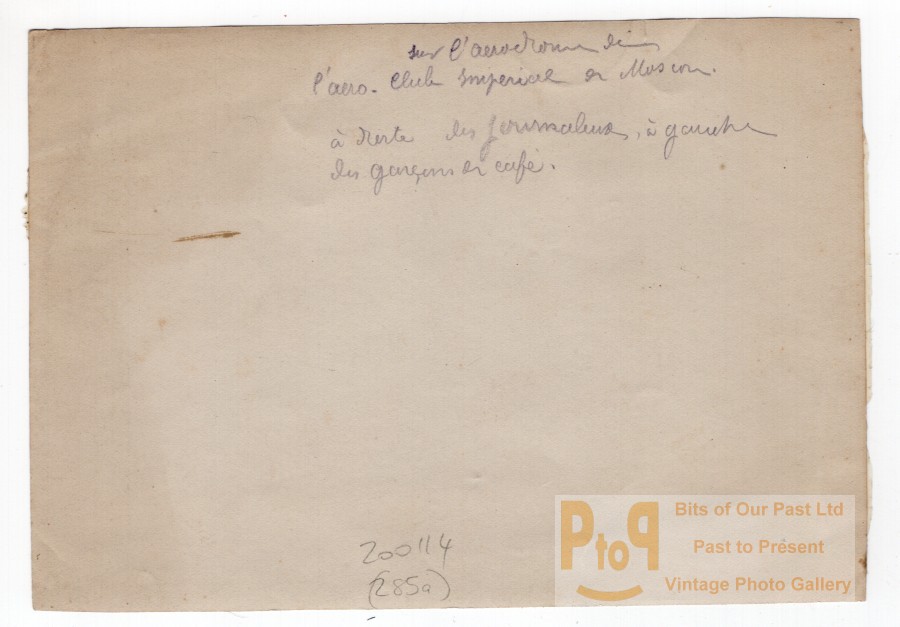 sur l'aerodrome de
l'aero-Club Imperial de Moscou.
à droite des journaleux, à gauche
des garçons de café.
200114
(285a)
PtoP
Bits of Our Past Ltd
Past to Present
Vintage Photo Gallery